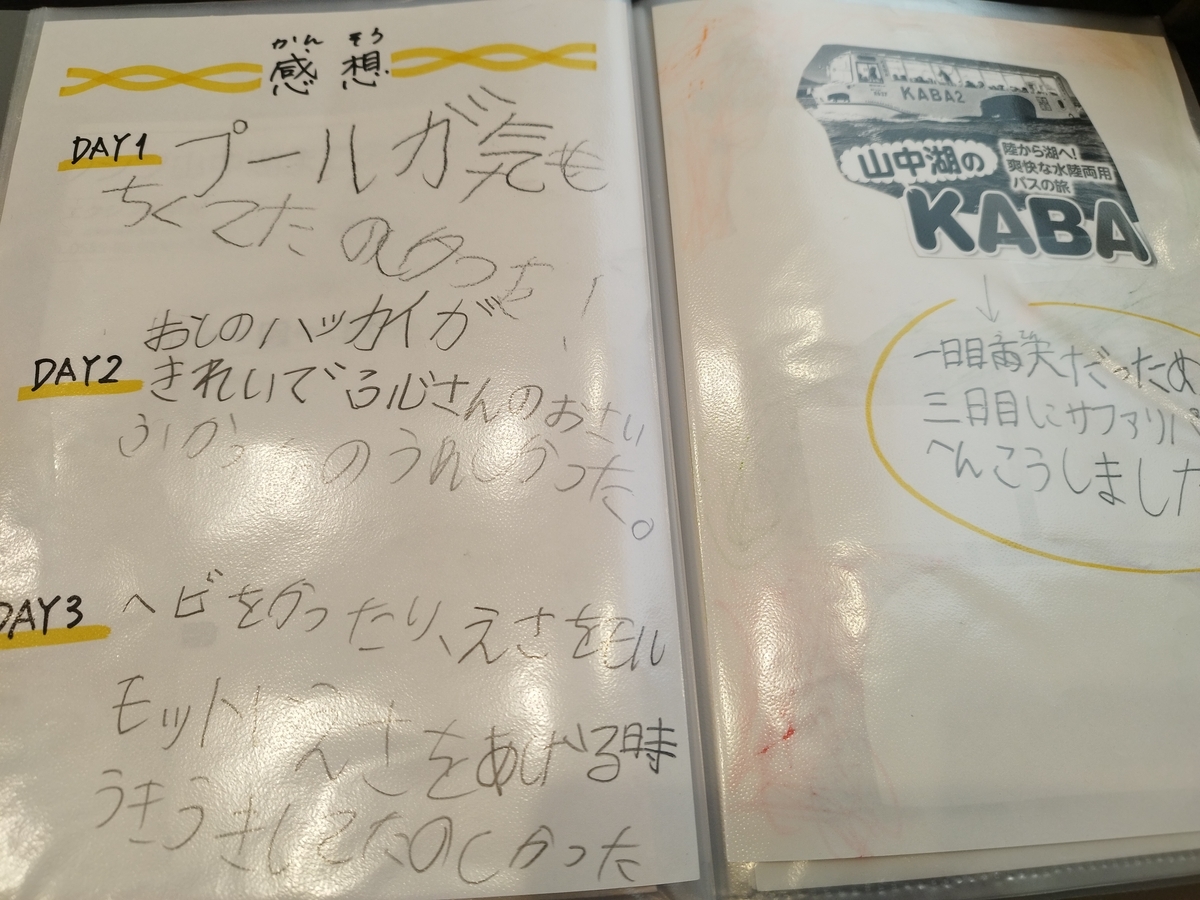 かん そう
感想
DAY1 プールが気も
ちくてたのかった!
DAY2 おしのハッカイが
きれいで
さんのおさい
のうれしかった。
DAY3 ヘビをかったり、えさをモル
モット
えさをあげる時
うきうきしてたのしかった
KABA2
山中湖の
陸から湖へ!
爽快な水陸両用
バスの旅
KABA
↓
一日目 だっため
三日目にサファリパ
へんこうしました